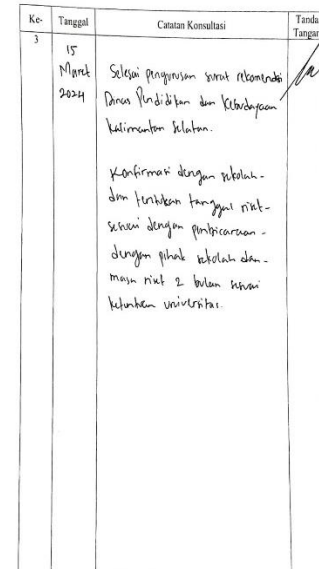 Ke- Tanggal Catatan Konsultasi Tanda Tangan
3
15 Maret 2024
Selesai pengurusan surat rekomendasi
Dinas Pendidikan dan Kebudayaan
Kalimantan Selatan.
Konfirmasi dengan sekolah -
dan tentukan tanggal riset -
sesuai dengan pembicaraan -
dengan pihak sekolah dan -
masa riset 2 bulan sesuai
ketentuan universitas.